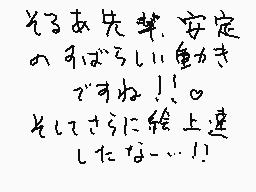 そるあ先輩、安定
のすばらしい動き
ですね!!♡
そしてさらに絵上達
したな〜…!!